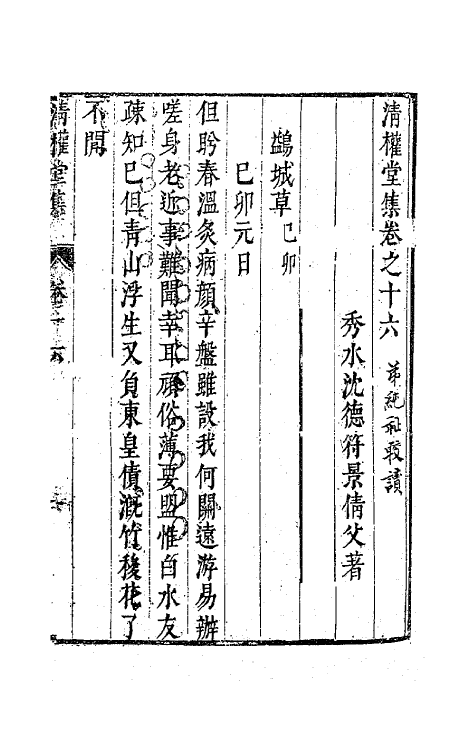 清權堂集卷之十六
秀水沈德符景倩父著
鷀城草己卯
己卯元日
但聆春溫炙病顏辛盤雖設我何關遠游易辦
嗟身老近事難聞幸耳頑俗薄要盟惟白水友
疎知己但青山浮生又負東皇債溉竹移花了
不閒
清權堂集
卷十六